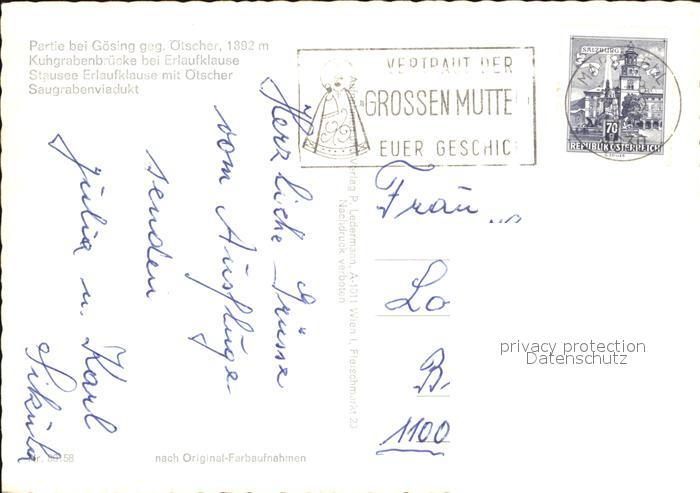 Partie bei Gösing geg. Ötscher, 1892 m
Kuhgrabenbrücke bei Erlaufklause
Stausee Erlaufklause mit Ötscher
Saugrabenviadukt
VERTRAUT DER
GROSSEN MUTTE
EUER GESCHIC
SALZBURG
70
REPUBLIK ÖSTERREICH
Herzliche Grüsse
vom Ausfluge
senden
Julia u. Karl
Sikula
Verlag P. Ledermann, A-1011 Wien I, Fleischmarkt 23
Nachdruck verboten
Frau
Lo
B.
1100
privacy protection
Datenschutz
nach Original-Farbaufnahmen